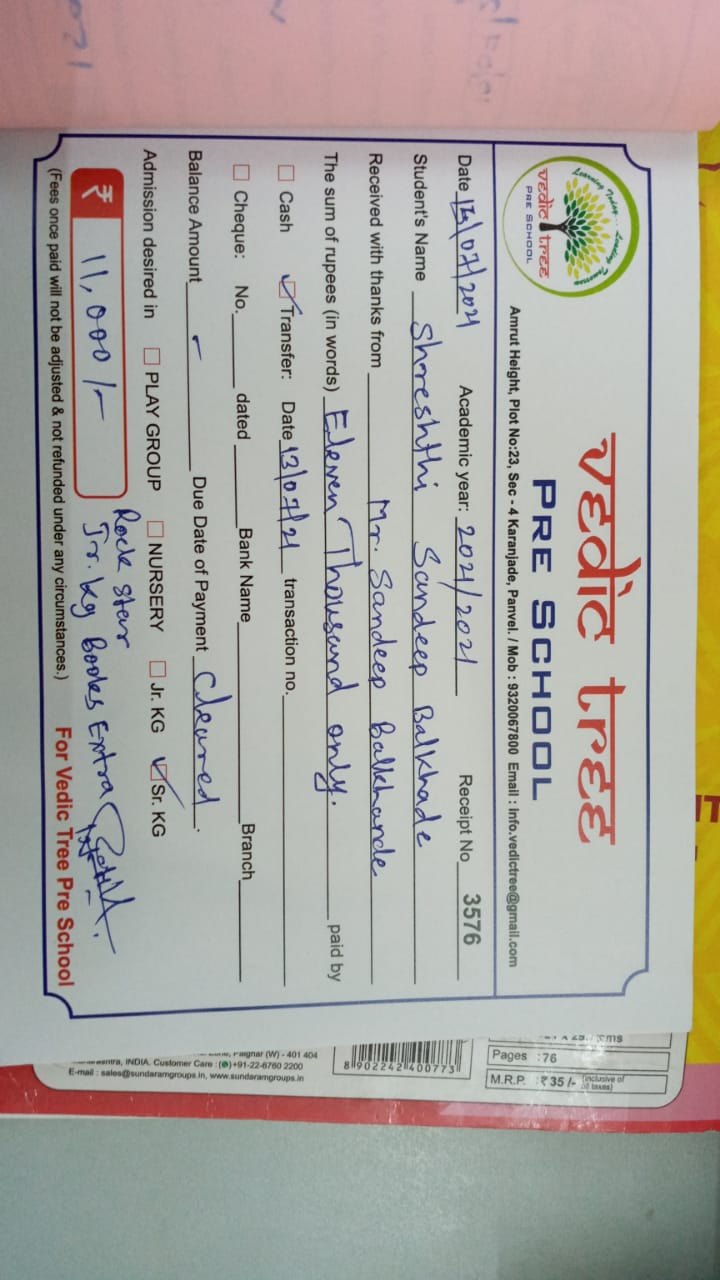 Learning Today... Leading Tomorrow
vedic tree
PRE SCHOOL
vedic tree
PRE SCHOOL
Amrut Height, Plot No:23, Sec - 4 Karanjade, Panvel. / Mob : 9320067800 Email : Info.vedictree@gmail.com
Date /07/2021 Academic year: 2021/2021 Receipt No 3576
Student's Name Shreshthi Sandeep Balkhade
Received with thanks from Mr. Sandeep Balkhande
The sum of rupees (in words) Eleven Thousand only. paid by
Cash Transfer: Date 13/07/21 transaction no.
Cheque: No. dated Bank Name Branch
Balance Amount - Due Date of Payment Cleared.
Admission desired in PLAY GROUP NURSERY Jr. KG Sr. KG
Rock star
₹ 11,000/- Jr. kg Books Extra
For Vedic Tree Pre School
(Fees once paid will not be adjusted & not refunded under any circumstances.)
Pages : 76
M.R.P. : ₹ 35 /- (inclusive of all taxes)
8 902242 400773
(W) - 401 404
INDIA. Customer Care : +91-22-6760 2200
E-mail : sales@sundaramgroups.in, www.sundaramgroups.in